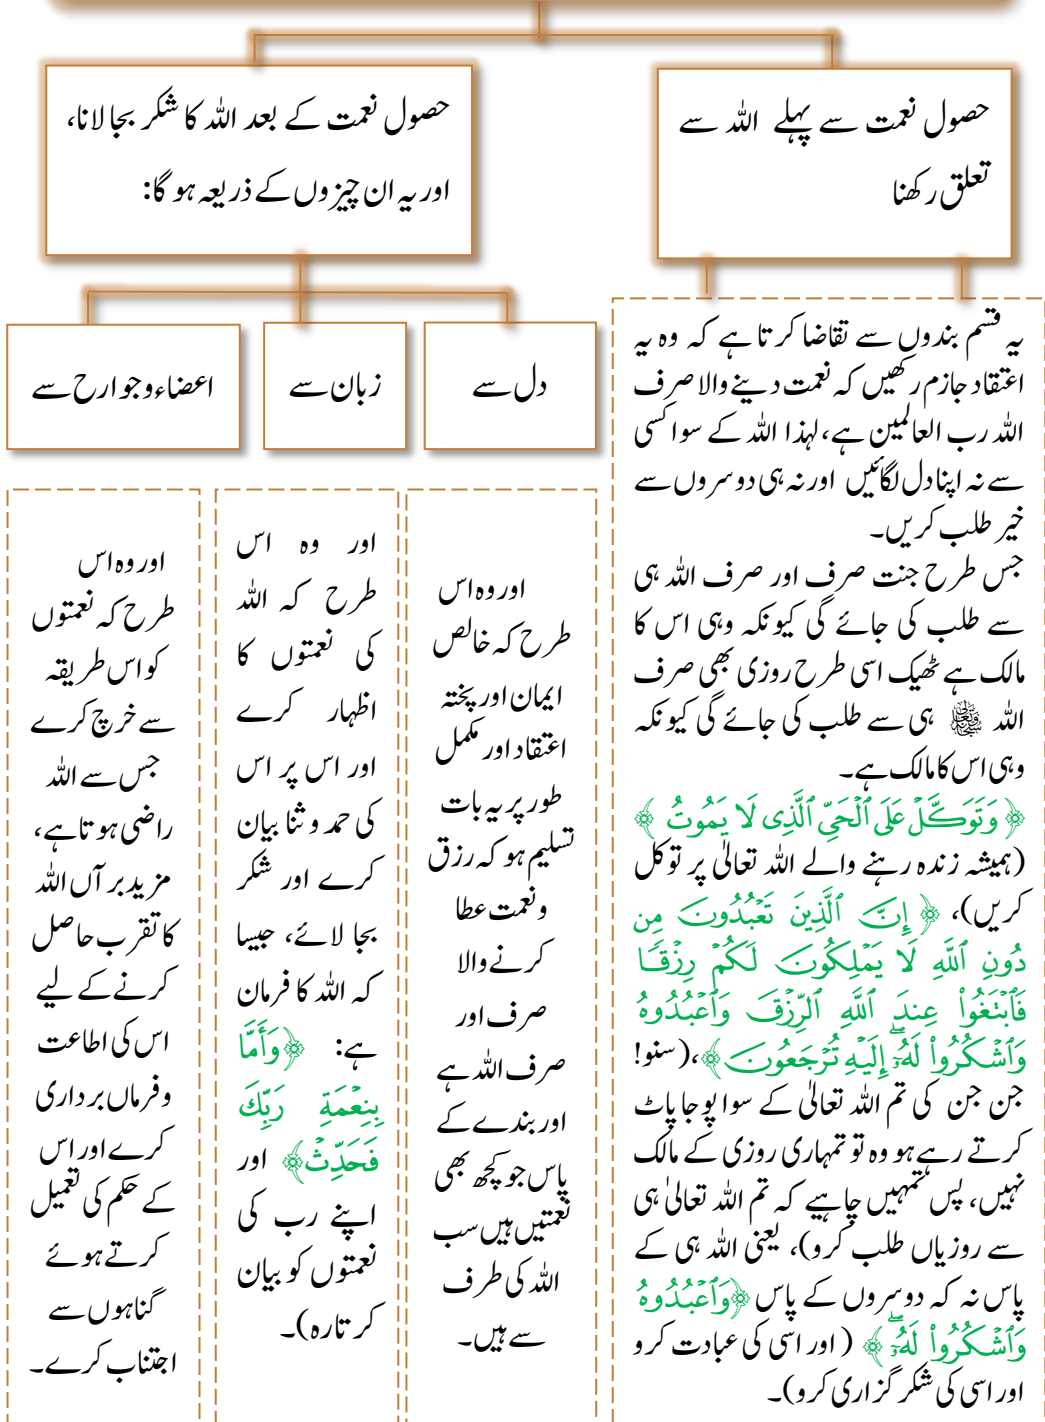 حصول نعمت سے پہلے اللہ سے
تعلق رکھنا
یہ قسم بندوں سے تقاضا کرتا ہے کہ وہ یہ
اعتقاد جازم رکھیں کہ نعمت دینے والا صرف
اللہ رب العالمین ہے، لہذا اللہ کے سوا کسی
سے نہ اپنا دل لگائیں اور نہ ہی دوسروں سے
خیر طلب کریں۔
جس طرح جنت صرف اور صرف اللہ ہی
سے طلب کی جائے گی کیونکہ وہی اس کا
مالک ہے ٹھیک اسی طرح روزی بھی صرف
اللہ ﷻ ہی سے طلب کی جائے گی کیونکہ
وہی اس کا مالک ہے۔
﴿ وَتَوَكَّلْ عَلَى ٱلْحَيِّ ٱلَّذِى لَا يَمُوتُ ﴾
(ہمیشہ زندہ رہنے والے اللہ تعالیٰ پر توکل
کریں)، ﴿ إِنَّ ٱلَّذِينَ تَعْبُدُونَ مِن
دُونِ ٱللَّهِ لَا يَمْلِكُونَ لَكُمْ رِزْقًا
فَٱبْتَغُوا۟ عِندَ ٱللَّهِ ٱلرِّزْقَ وَٱعْبُدُوهُ
وَٱشْكُرُوا۟ لَهُۥٓ ۖ إِلَيْهِ تُرْجَعُونَ ﴾، (سنو!
جن جن کی تم اللہ تعالیٰ کے سوا پوجا پاٹ
کرتے رہے ہو وہ تو تمہاری روزی کے مالک
نہیں، پس تمہیں چاہیے کہ تم اللہ تعالیٰ ہی
سے روزیاں طلب کرو)، یعنی اللہ ہی کے
پاس نہ کہ دوسروں کے پاس ﴿وَٱعْبُدُوهُ
وَٱشْكُرُوا۟ لَهُۥٓ ۖ ﴾ ( اور اسی کی عبادت کرو
اور اسی کی شکر گزاری کرو)۔
حصول نعمت کے بعد اللہ کا شکر بجا لانا،
اور یہ ان چیزوں کے ذریعہ ہو گا:
دل سے
اور وہ اس
طرح کہ خالص
ایمان اور پختہ
اعتقاد اور مکمل
طور پر یہ بات
تسلیم ہو کہ رزق
ونعمت عطا
کرنے والا
صرف اور
صرف اللہ ہے
اور بندے کے
پاس جو کچھ بھی
نعمتیں ہیں سب
اللہ کی طرف
سے ہیں۔
زبان سے
اور وہ اس
طرح کہ اللہ
کی نعمتوں کا
اظہار کرے
اور اس پر اس
کی حمد و ثنا بیان
کرے اور شکر
بجا لائے، جیسا
کہ اللہ کا فرمان
ہے: ﴿وَأَمَّا
بِنِعْمَةِ رَبِّكَ
فَحَدِّثْ﴾ اور
اپنے رب کی
نعمتوں کو بیان
کرتا رہ)۔
اعضاء وجوارح سے
اور وہ اس
طرح کہ نعمتوں
کو اس طریقہ
سے خرچ کرے
جس سے اللہ
راضی ہوتا ہے،
مزید بر آں اللہ
کا تقرب حاصل
کرنے کے لیے
اس کی اطاعت
وفرماں برداری
کرے اور اس
کے حکم کی تعمیل
کرتے ہوئے
گناہوں سے
اجتناب کرے۔